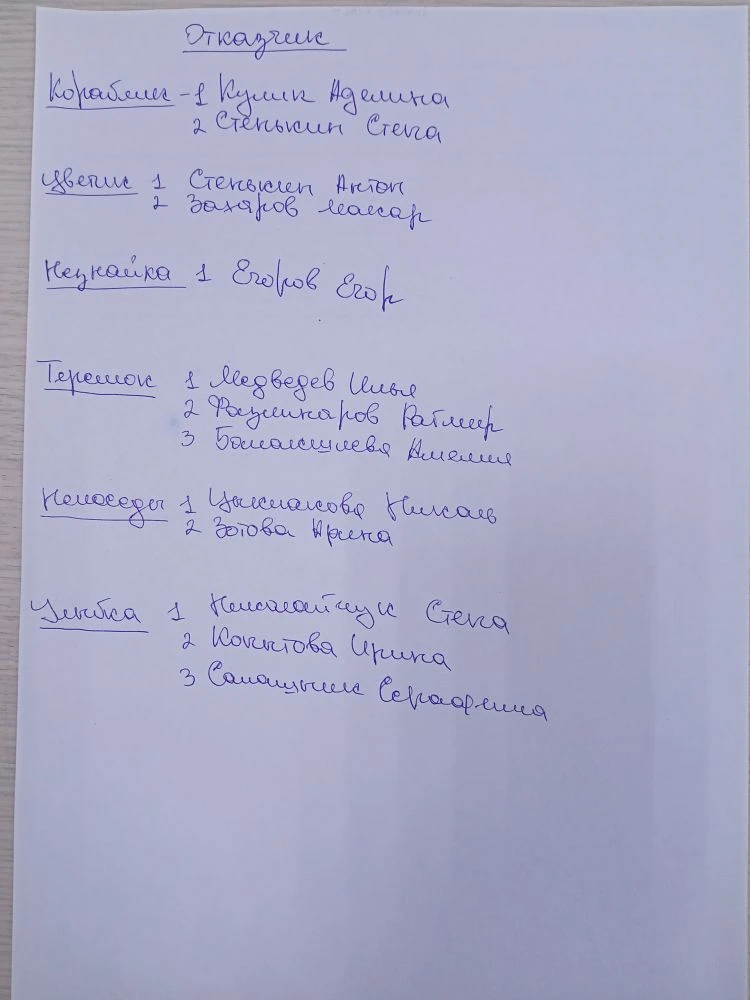 Отказчик
Кораблик - 1 Кулик Аделина
2 Стенькин Степа
Цветик 1 Стенькин Антон
2 Захаров Макар
Незнайка 1 Егоров Егор
Теремок 1 Медведев Илья
2 Ратмир
3 Амелия
Непоседы 1 Николь
2 Зотова Арина
Улыбка 1 Николайчук Степа
2 Копытова Ирина
3 Серафима